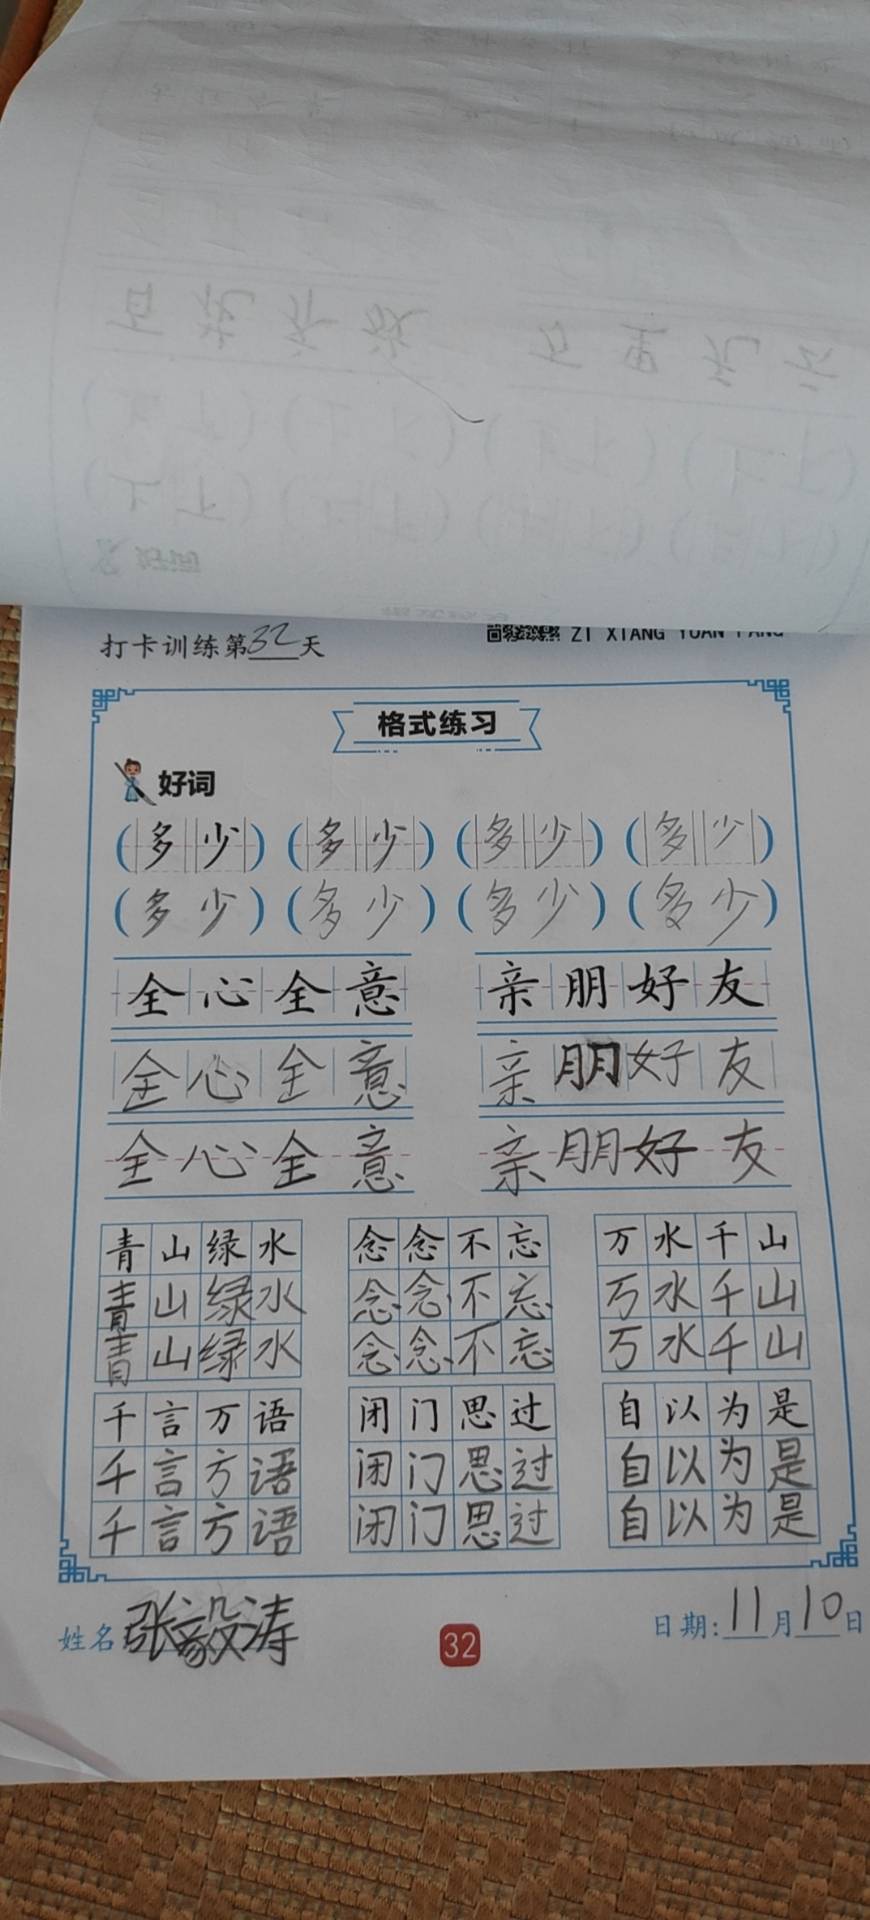 打卡训练第32天
格式练习
好词
(多少) (多少) (多少) (多少)
(多少) (多少) (多少) (多少)
全心全意 亲朋好友
全心全意 亲朋好友
全心全意 亲朋好友
青山绿水 念念不忘 万水千山
青山绿水 念念不忘 万水千山
青山绿水 念念不忘 万水千山
千言万语 闭门思过 自以为是
千言方语 闭门思过 自以为是
千言方语 闭门思过 自以为是
姓名 张毅涛 32 日期:11月10日